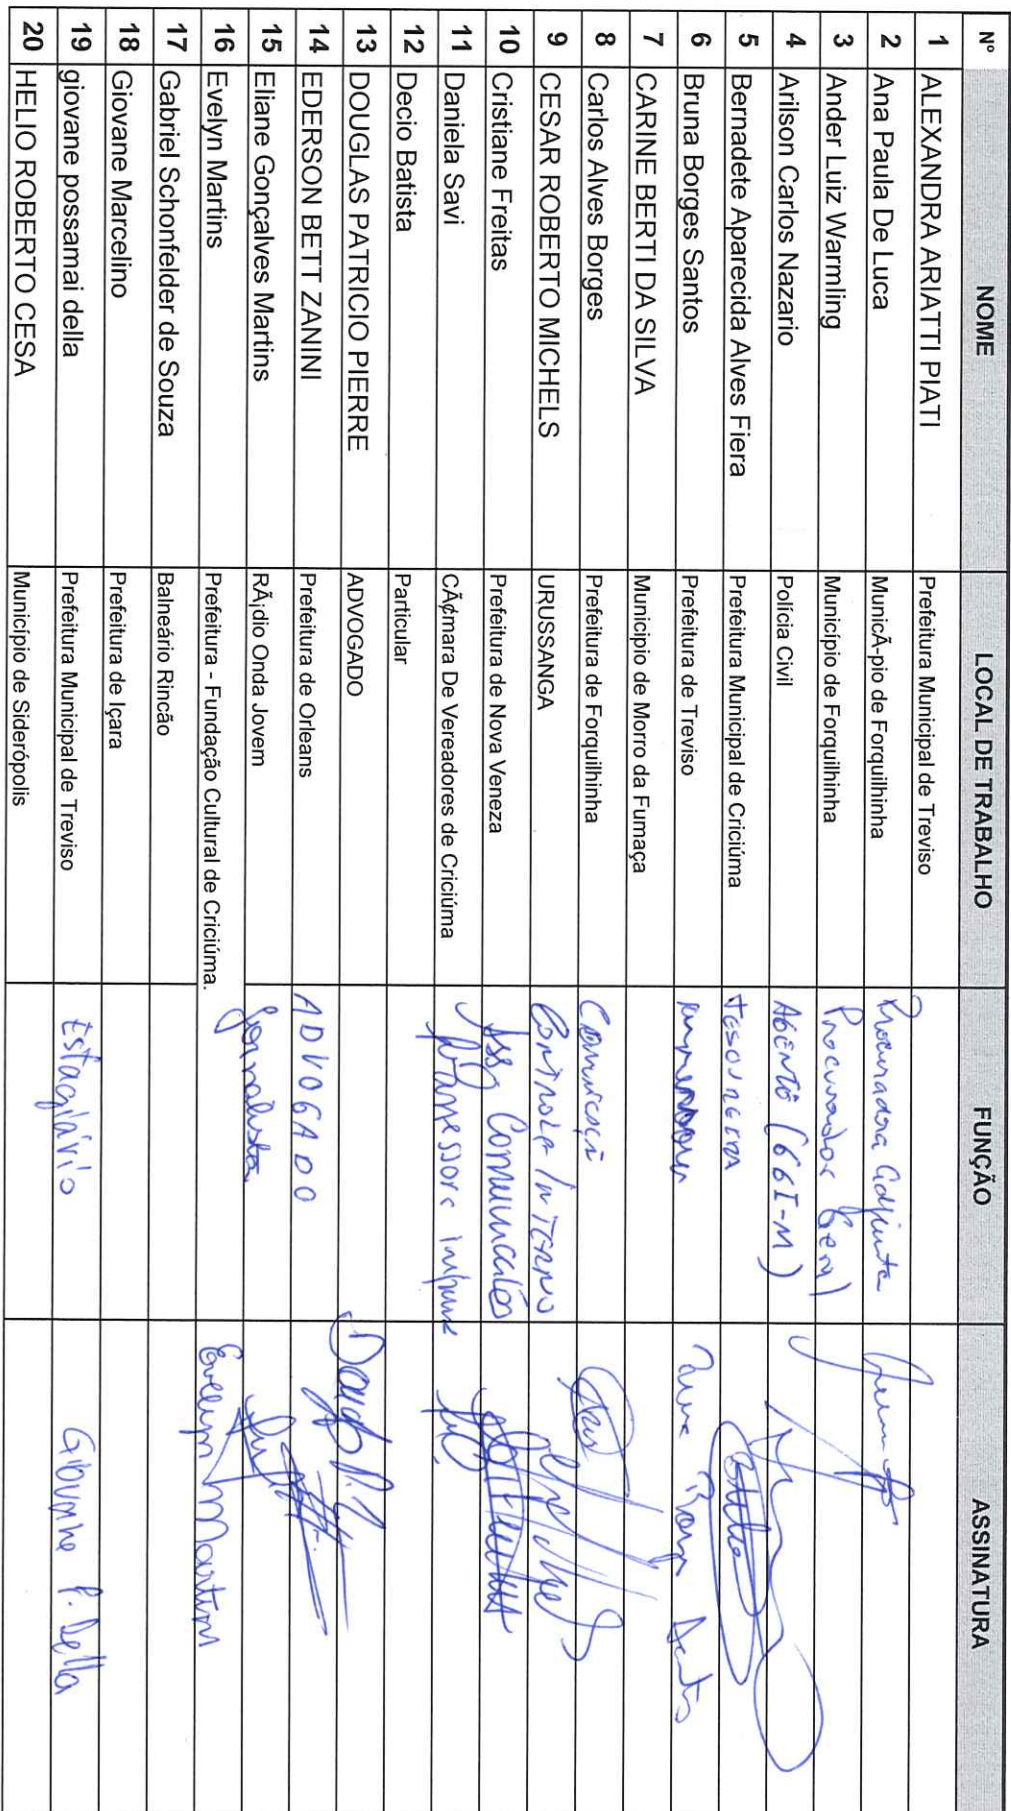 Nº NOME LOCAL DE TRABALHO FUNÇÃO ASSINATURA
1 ALEXANDRA ARIATTI PIATI Prefeitura Municipal de Treviso
2 Ana Paula De Luca MunicÃ-pio de Forquilhinha Procuradora Adjunta
3 Ander Luiz Warmling Município de Forquilhinha Procurador Geral
4 Arilson Carlos Nazario Polícia Civil Agente
5 Bernadete Aparecida Alves Fiera Prefeitura Municipal de Criciúma Tesoureira
6 Bruna Borges Santos Prefeitura de Treviso
7 CARINE BERTI DA SILVA Municipio de Morro da Fumaça
8 Carlos Alves Borges Prefeitura de Forquilhinha
9 CESAR ROBERTO MICHELS URUSSANGA Controle Interno
10 Cristiane Freitas Prefeitura de Nova Veneza Ass. Comunicação
11 Daniela Savi CÃ¢mara De Vereadores de Criciúma
12 Decio Batista Particular
13 DOUGLAS PATRICIO PIERRE ADVOGADO
14 EDERSON BETT ZANINI Prefeitura de Orleans ADVOGADO
15 Eliane Gonçalves Martins RÃ¡dio Onda Jovem Jornalista
16 Evelyn Martins Prefeitura - Fundação Cultural de Criciúma. Evelyn Martins
17 Gabriel Schonfelder de Souza Balneário Rincão
18 Giovane Marcelino Prefeitura de Içara
19 giovane possamai della Prefeitura Municipal de Treviso Estagiário Giovane P. Della
20 HELIO ROBERTO CESA Município de Siderópolis